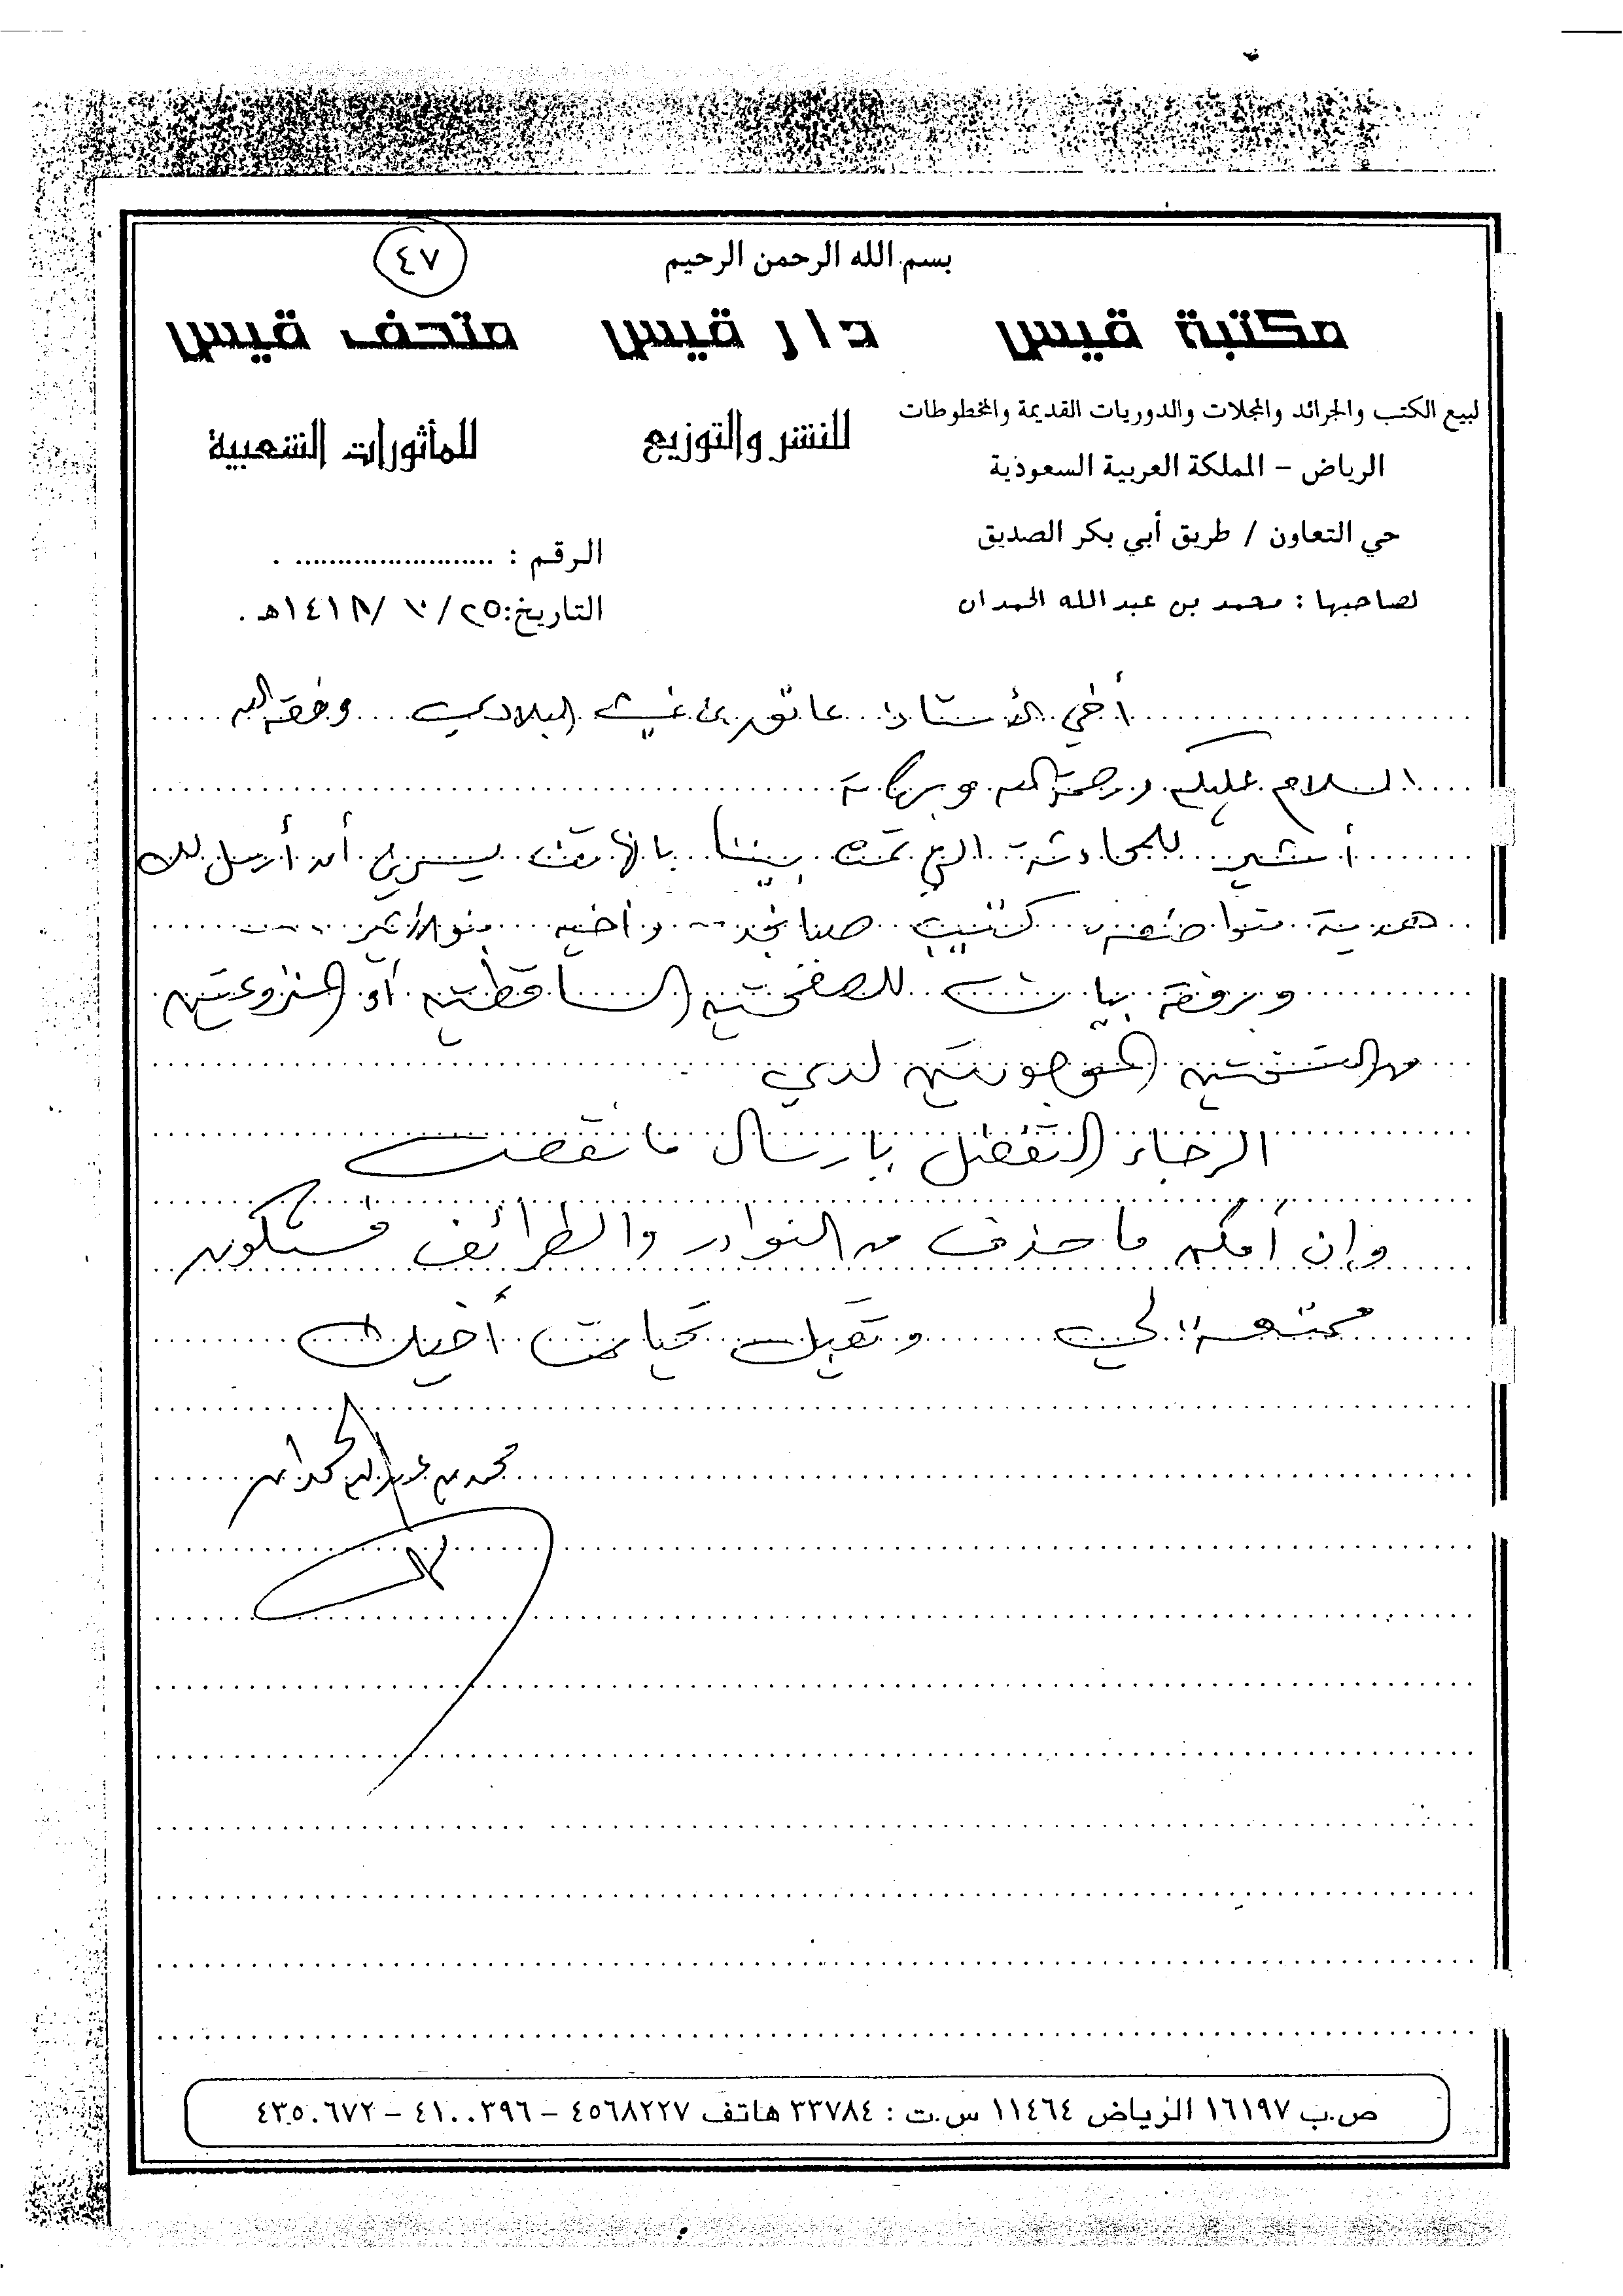 ٤٧
بسم الله الرحمن الرحيم
مكتبة قيس دار قيس متحف قيس
لبيع الكتب والجرائد والمجلات والدوريات القديمة والمخطوطات
للنشر والتوزيع
للمأثورات الشعبية
الرياض - المملكة العربية السعودية
حي التعاون / طريق أبي بكر الصديق
الرقم : .......................
لصاحبها : محمد بن عبد الله الحمدان
التاريخ: ٢٥ / ١٠ / ١٤١٨هـ .
أخي الأستاذ عاتق بن غيث البلادي وفقه الله
السلام عليكم ورحمة الله وبركاته
أشير للمحادثة التي تمت بيننا بالهاتف يسرني أن أرسل لك
هدية متواضعة، كتيب صبا نجد .. وأخيه بنو الأثير ....
وبرفقه بيان للصفحتين الساقطتين أو المنزوعتين
من النسختين الموجودتين لدي
الرجاء التفضل بإرسال ما نقص
وإن أمكن ما حذف من النوادر والطرائف فستكون
ممتعة لي وتقبل تحيات أخيك
محمد بن عبد الله الحمدان
ص.ب ١٦١٩٧ الرياض ١١٤٦٤ س.ت : ٣٣٧٨٤ هاتف ٤٥٦٨٢٢٧ - ٤١٠٠٣٩٦ - ٤٣٥٠٦٧٢